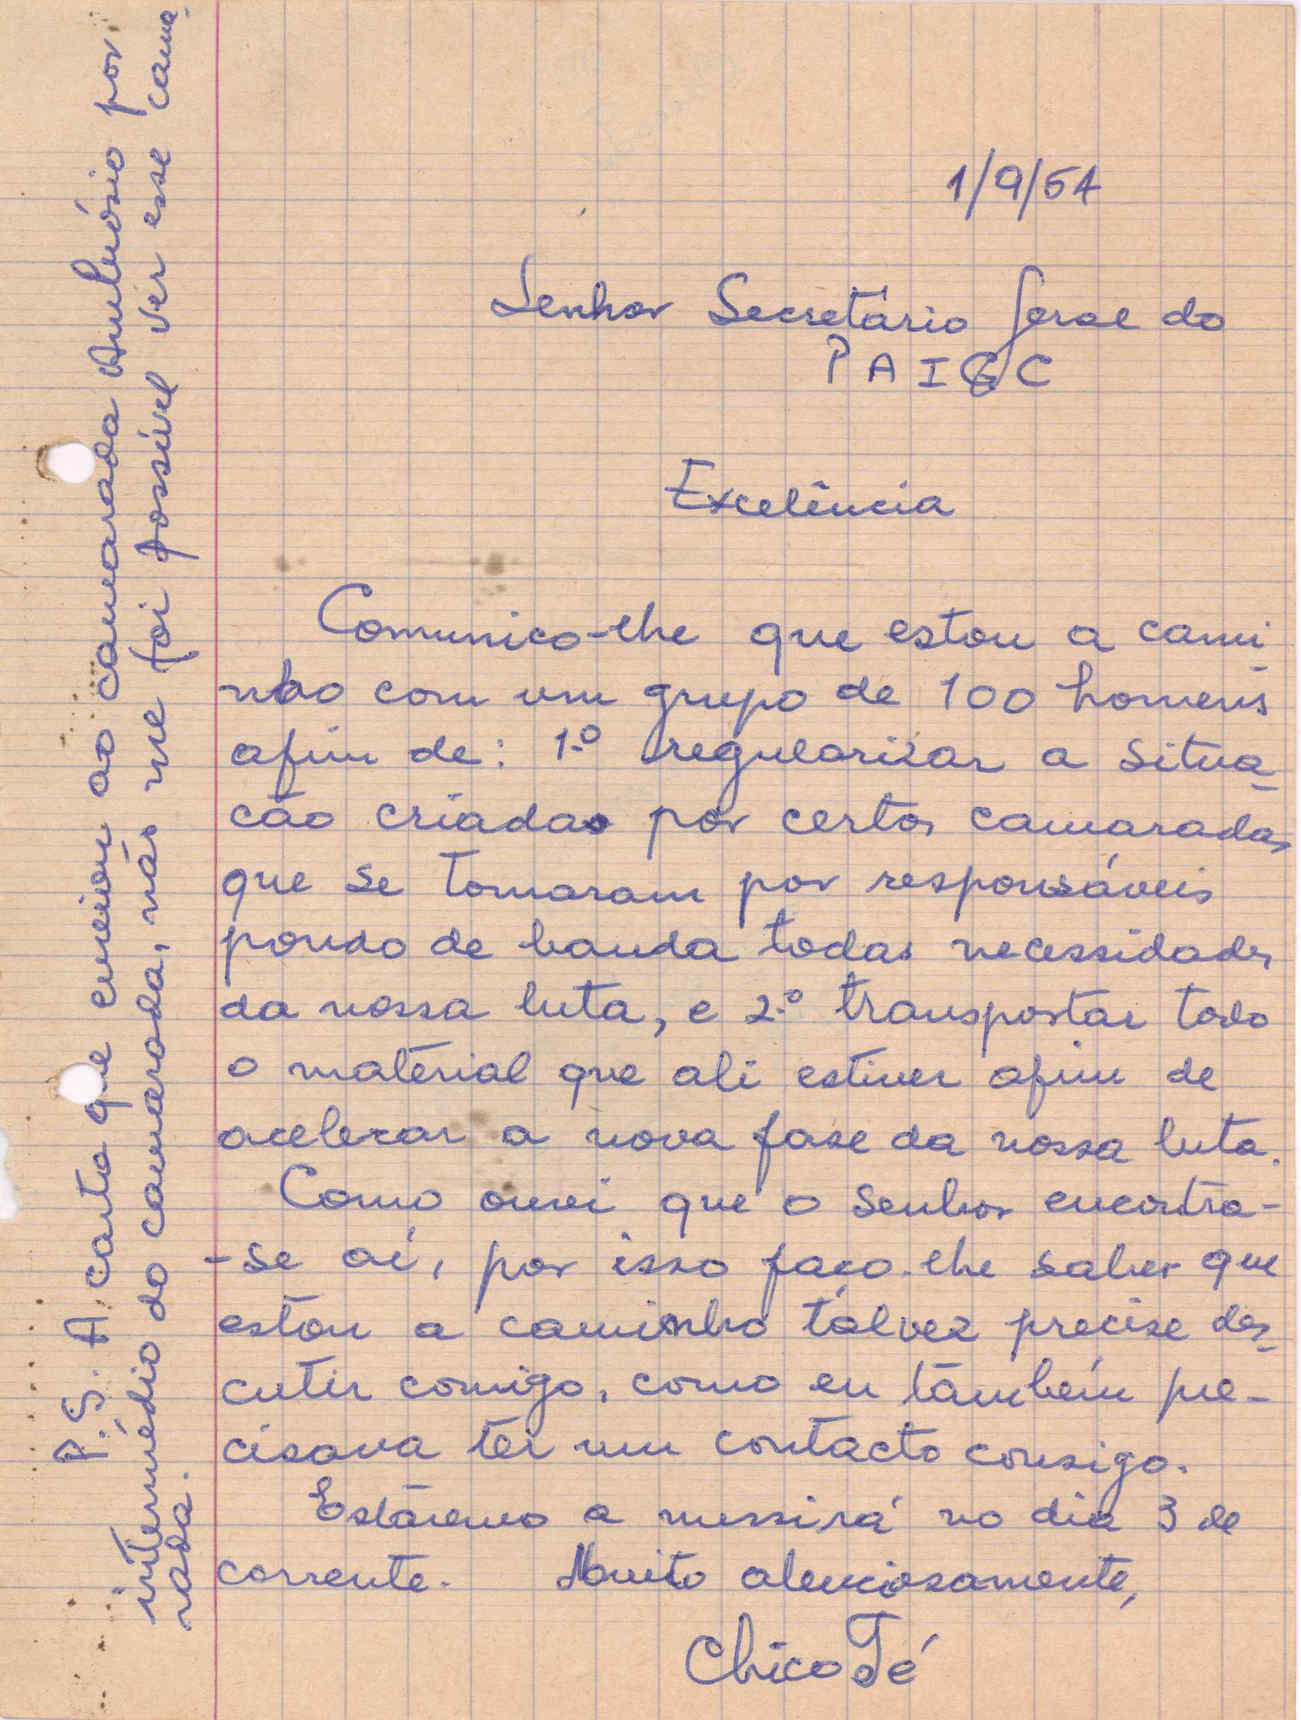 1/9/64
Senhor Secretário Geral do
PAIGC
Excelência
Comunico-lhe que estou a cami
nho com um grupo de 100 homens
afim de: 1.º regularizar a situa
cão criada por certos camaradas
que se tomaram por responsáveis
pondo de banda todas necessidades
da nossa luta, e 2.º transportar todo
o material que ali estiver afim de
acelerar a nova fase da nossa luta.
Como ouvi que o Senhor encontra-
-se aí, por isso faço-lhe saber que
estou a caminho talvez precise des
cutir comigo, como eu também pre-
cisava ter um contacto consigo.
Estaremo a no dia 3 de
corrente. Muito atenciosamente,
Chico Té
P.S. A carta que enviou ao camarada por
intermédio do camarada, não me foi possível ver esse cama
rada.